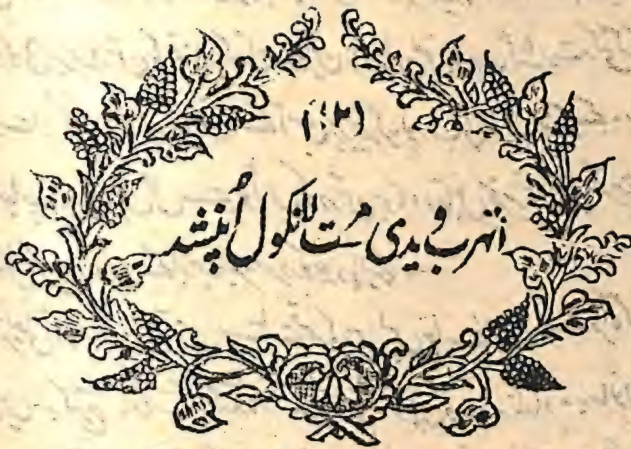 (۱۲)
اتهرب ویدی مرت لانکول اُپنشد